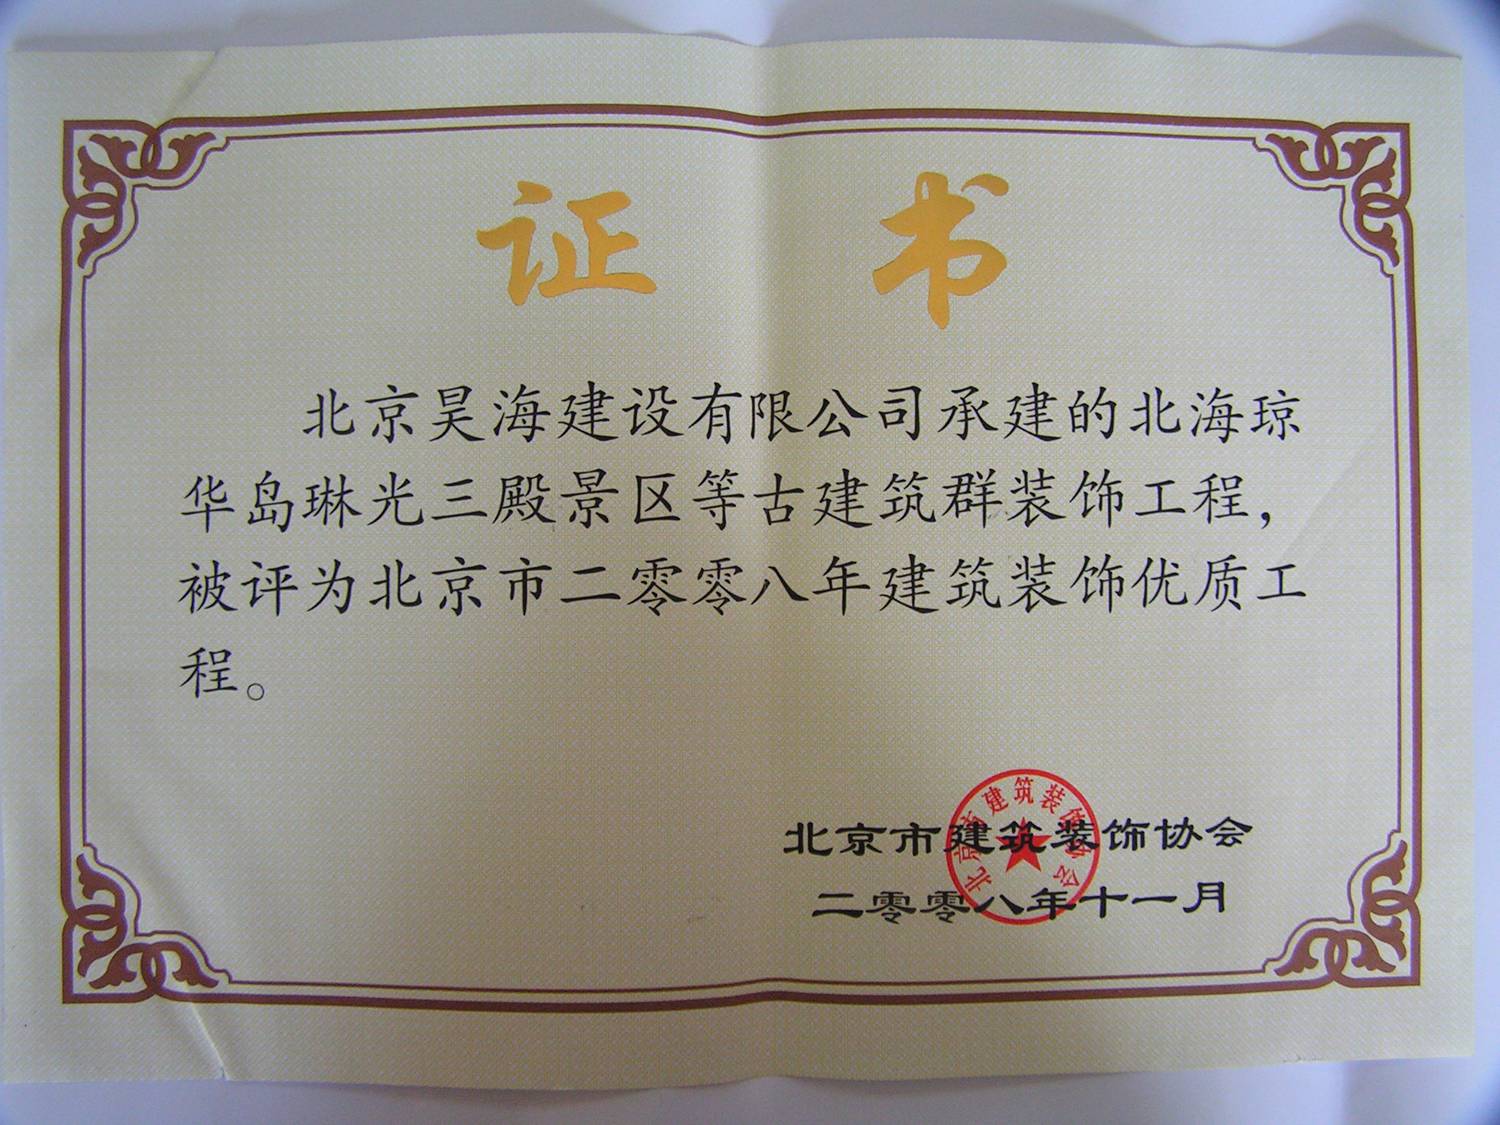 证 书
北京昊海建设有限公司承建的北海琼
华岛琳光三殿景区等古建筑群装饰工程，
被评为北京市二零零八年建筑装饰优质工
程。
北京市建筑装饰协会
北京市建筑装饰协会
二零零八年十一月